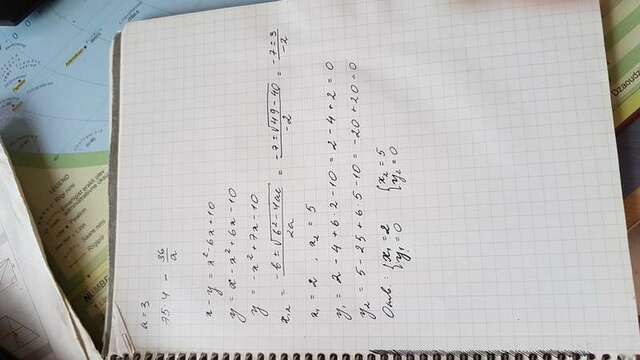 LEGEND
a = 3
75·4 - 36/a
x - y = x² - 6x + 10
y = x - x² + 6x - 10
y = -x² + 7x - 10
x₁,₂ = (-b ± √(b² - 4ac))/2a = (-7 ± √(49 - 40))/-2 = (-7 ± 3)/-2
x₁ = 2 , x₂ = 5
y₁ = 2 - 4 + 6·2 - 10 = 2 - 4 + 2 = 0
y₂ = 5 - 25 + 6·5 - 10 = -20 + 20 = 0
Отв: {x₁ = 2 {x₂ = 5
{y₁ = 0 {y₂ = 0
Dzaoudzi